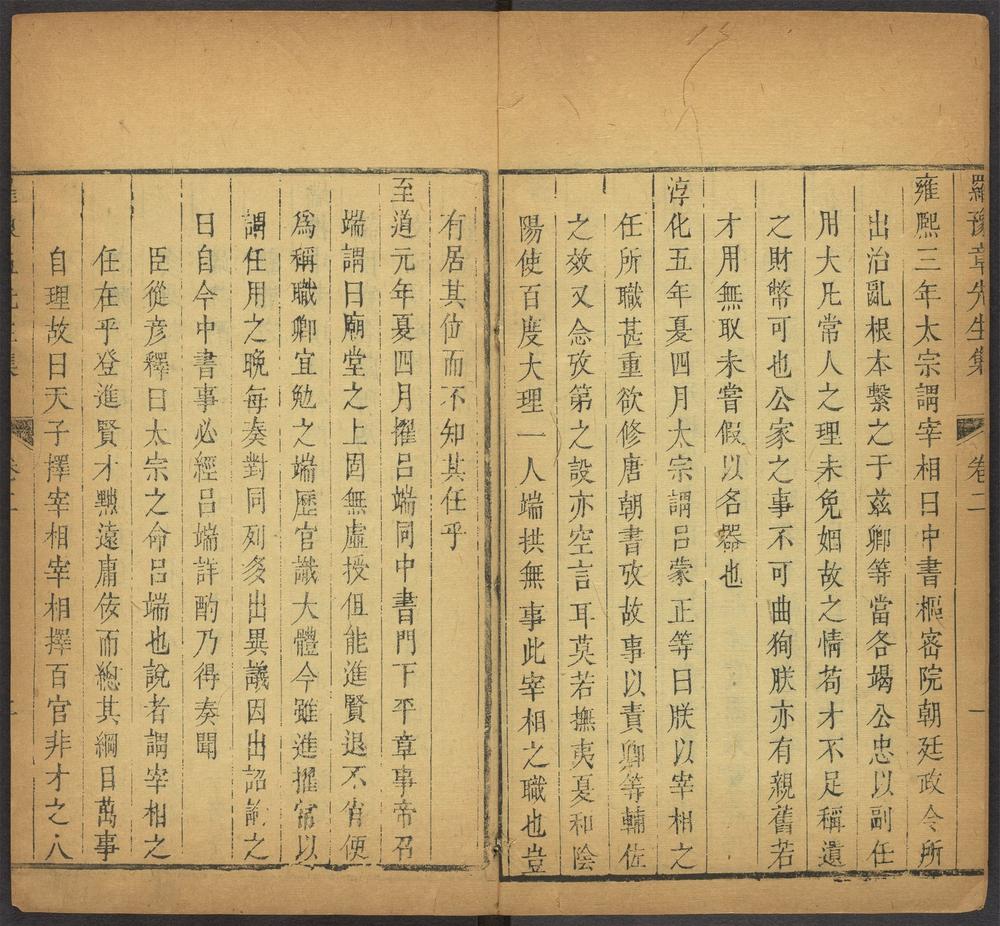 羅豫章先生集 卷二 一
雍熙三年太宗謂宰相曰中書樞密院朝廷政令所
出治亂根本繫之于兹卿等當各竭公忠以副任
用大凡常人之理未免姻故之情苟才不足稱遺
之財幣可也公家之事不可曲狥朕亦有親舊若
才用無取未嘗假以名器也
淳化五年夏四月太宗謂吕蒙正等曰朕以宰相之
任所職甚重欲修唐朝書攷故事以責卿等輔佐
之效又念攷第之設亦空言耳莫若撫夷夏和陰
陽使百度大理一人端拱無事此宰相之職也豈
有居其位而不知其任乎
至道元年夏四月擢吕端同中書門下平章事帝召
端謂曰廟堂之上固無虛授但能進賢退不肖便
爲稱職卿宜勉之端歷官識大體今雖進擢常以
謂任用之晚每奏對同列多出異議因出詔諭之
曰自今中書事必經吕端詳酌乃得奏聞
臣從彦釋曰太宗之命吕端也說者謂宰相之
任在乎登進賢才黜遠庸佞而緫其綱目萬事
自理故曰天子擇宰相宰相擇百官非才之人